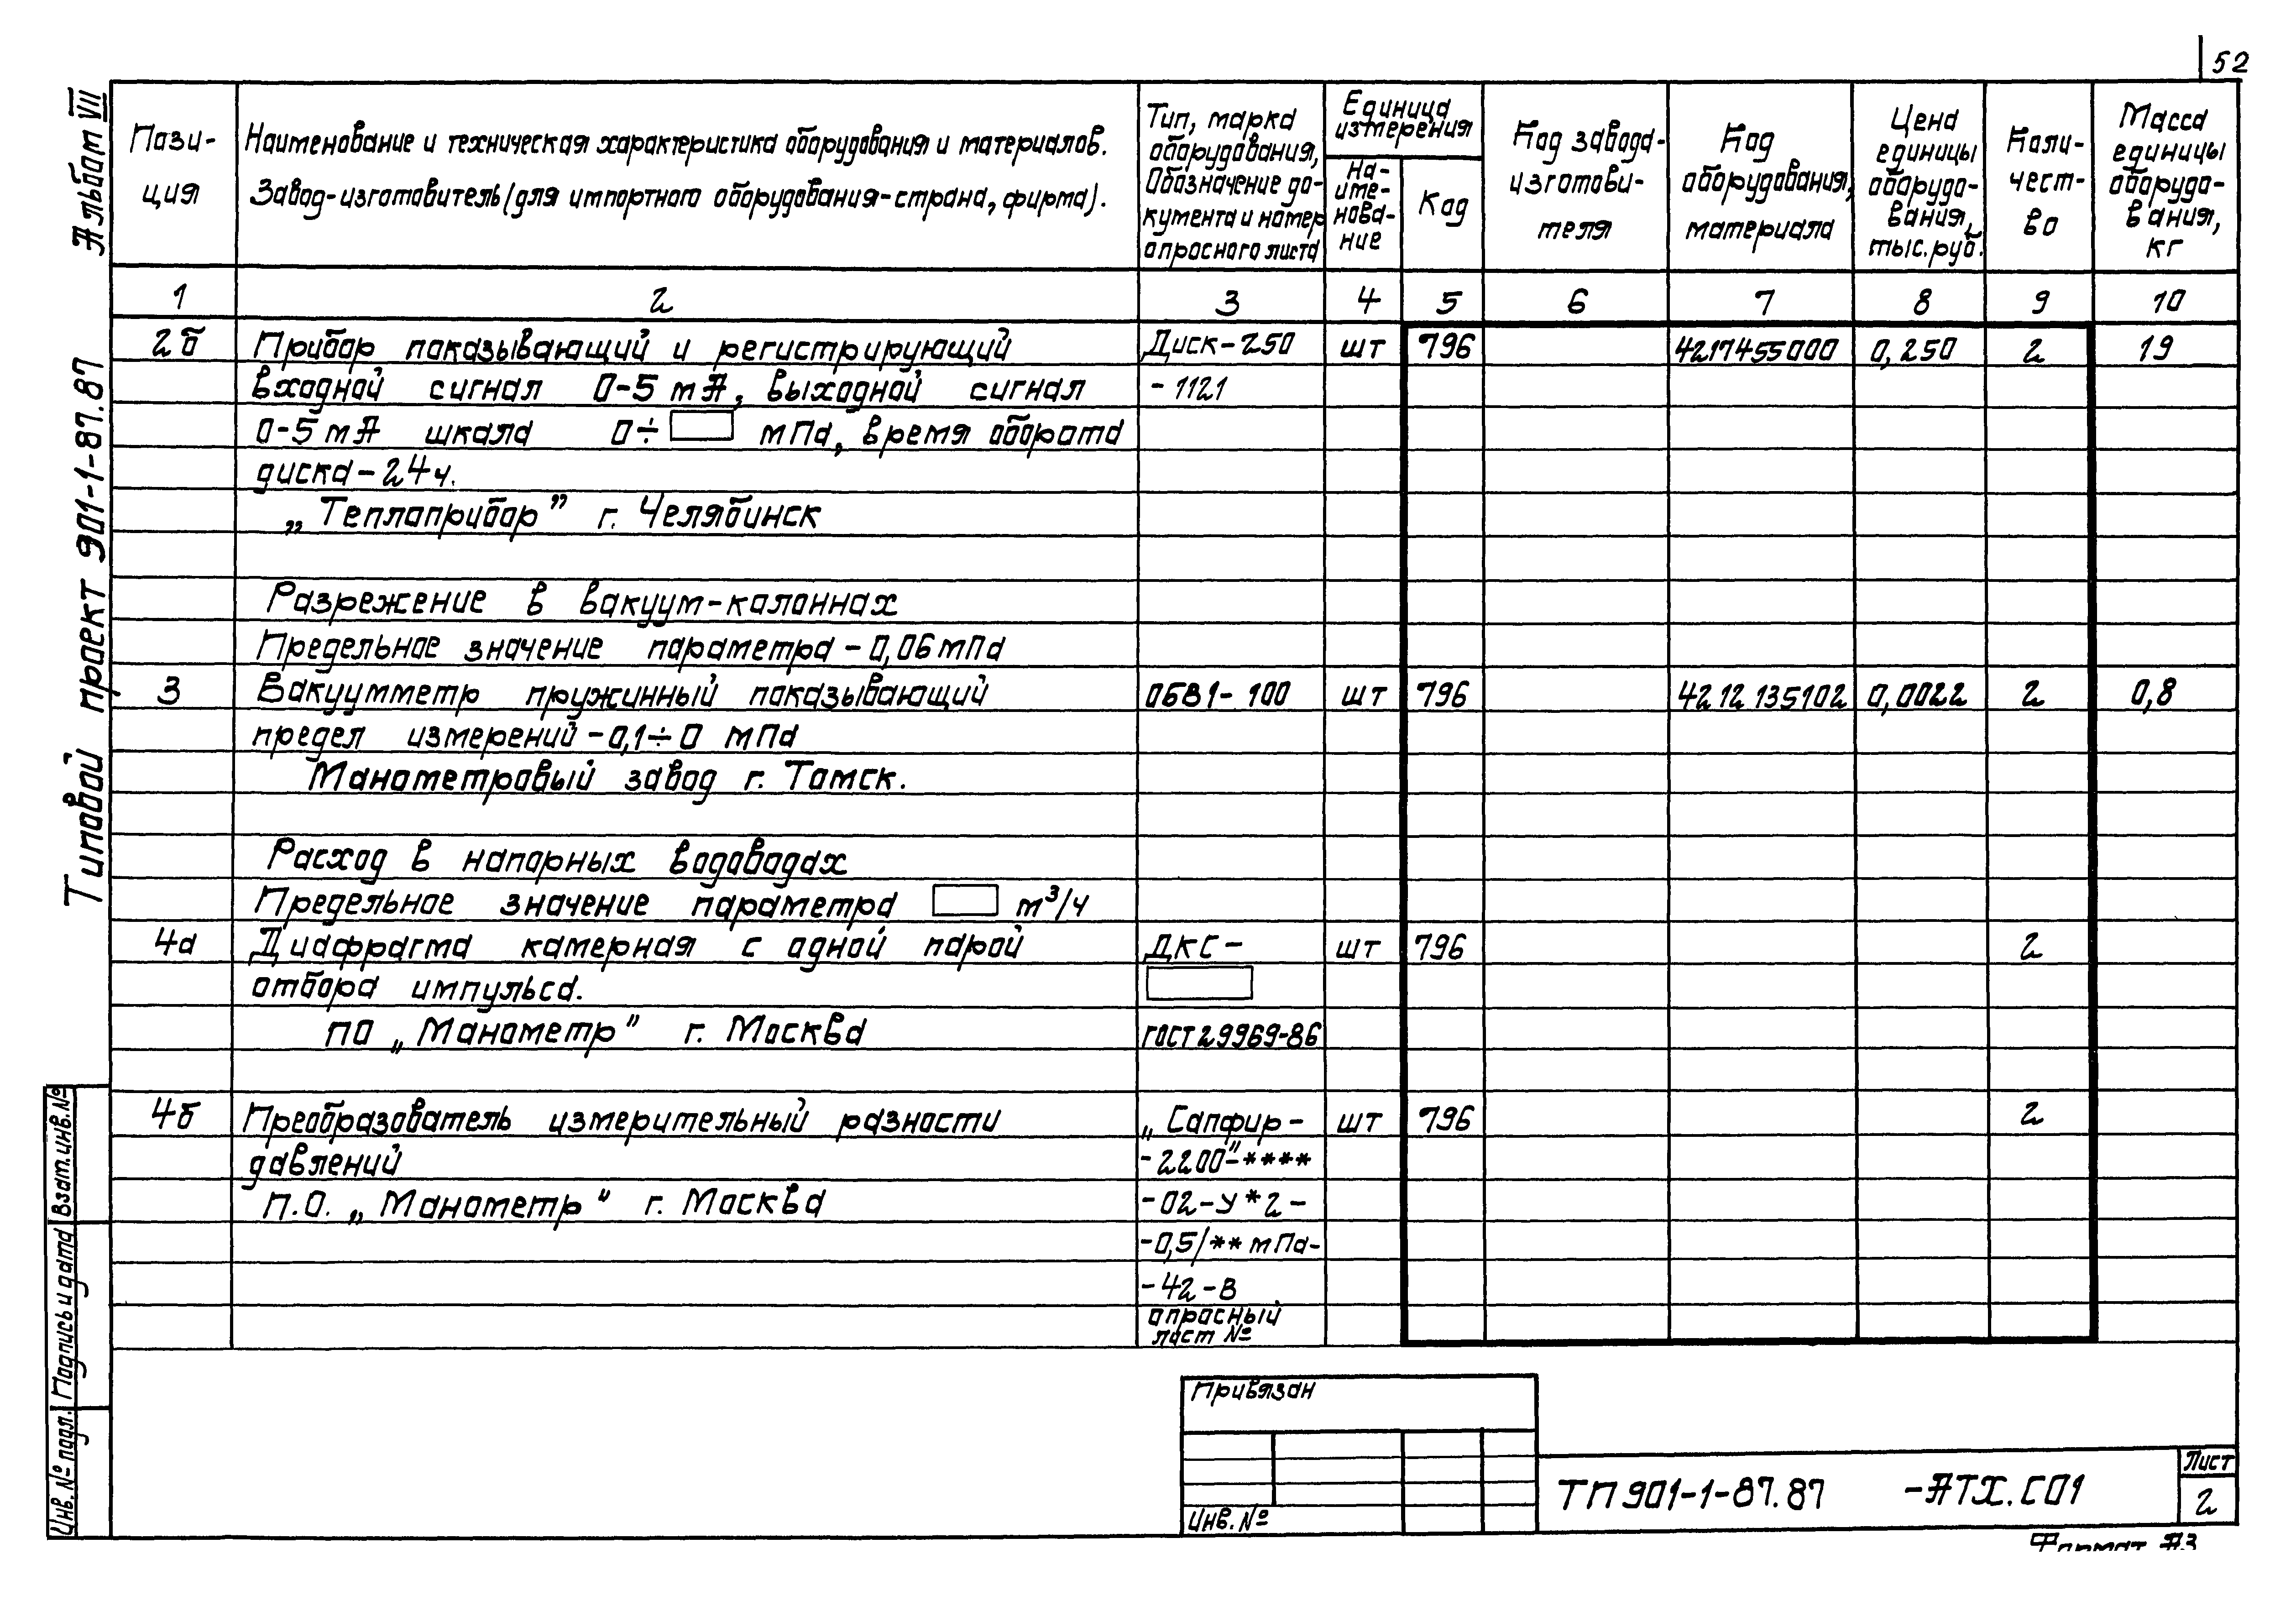 52
Альбом VII
Типовой проект 901-1-87.87
Пози-
ция
Наименование и техническая характеристика оборудования и материалов.
Завод-изготовитель (для импортного оборудования-страна, фирма).
Тип, марка
оборудования,
Обозначение до-
кумента и номер
опросного листа
Единица
измерения
На-
име-
нова-
ние
Код
Код завода-
изготови-
теля
Код
оборудования,
материала
Цена
единицы
оборудо-
вания,
тыс.руб.
Коли-
чест-
во
Масса
единицы
оборудо-
вания,
кг
1 2 3 4 5 6 7 8 9 10
2б Прибор показывающий и регистрирующий Диск-250 шт 796 4217455000 0,250 2 19
входной сигнал 0-5 mA, выходной сигнал -1121
0-5 mA шкала 0÷ мПа, время оборота
диска-24ч.
„Теплоприбор” г. Челябинск
Разрежение в вакуум-колоннах
Предельное значение параметра -0,06 мПа
3 Вакуумметр пружинный показывающий ОБВ1-100 шт 796 4212135102 0,0022 2 0,8
предел измерений -0,1÷0 мПа
Манометровый завод г. Томск.
Расход в напорных водоводах
Предельное значение параметра м³/ч
4а Диафрагма камерная с одной парой ДКС- шт 796 2
отбора импульса.
ПО „Манометр” г. Москва ГОСТ 29969-86
4б Преобразователь измерительный разности „Сапфир- шт 796 2
давлений -2200”-****
п.о. „Манометр” г. Москва -02-У*2-
-0,5/** мПа-
-42-В
опросный
лист №
Взам. инв. №
Подпись и дата
Инв. № подл.
Привязан
Инв. №
ТП 901-1-87.87 -АТХ.СО1
Лист
2
Формат А3